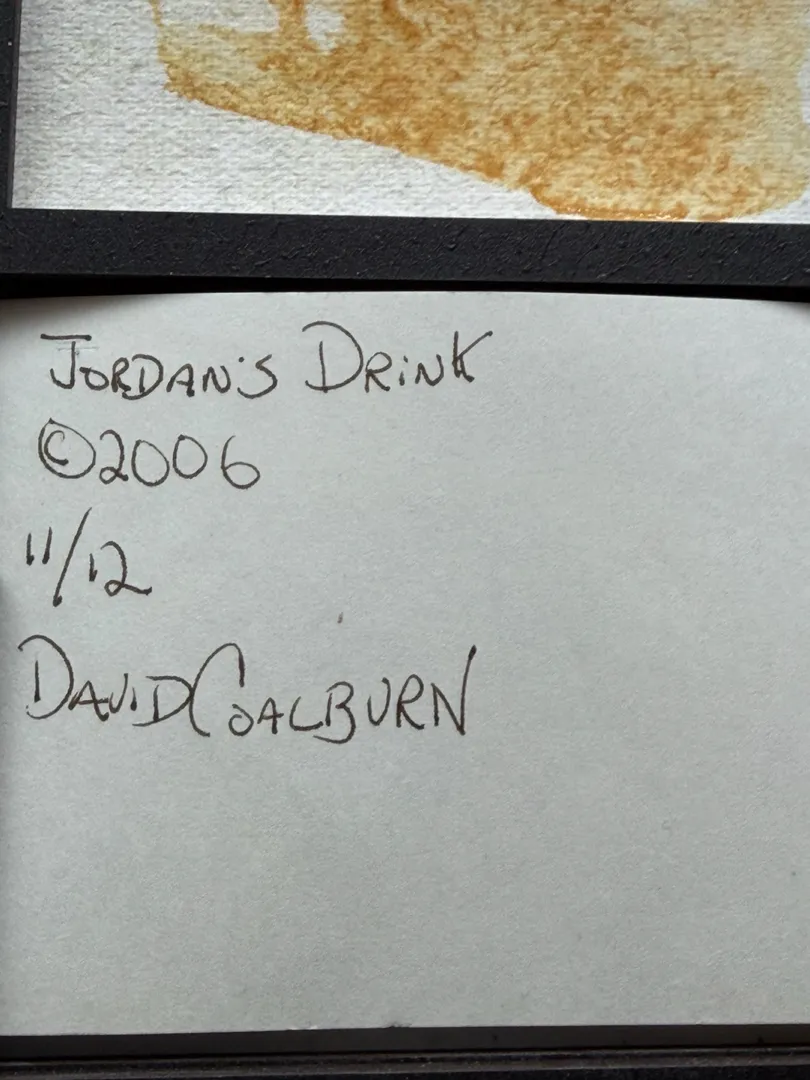 JORDAN'S DRINK
©2006
11/12
DAVID COALBURN